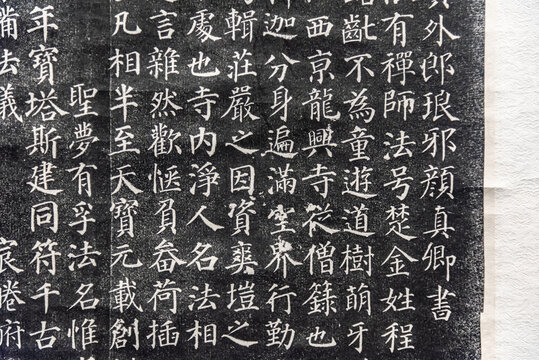 外郎琅邪顏真卿書
有禪師法号楚金姓程
齔不為童遊道樹萌牙
西京龍興寺從僧籙也
迦分身遍滿空界行勤
輯莊嚴之因資爽塏之
處也寺內淨人名法相
言雜然歡愜負畚荷插
凡相半至天寶元載創
聖夢有孚法名惟
年寶塔斯建同符千古
法儀 宸睠府